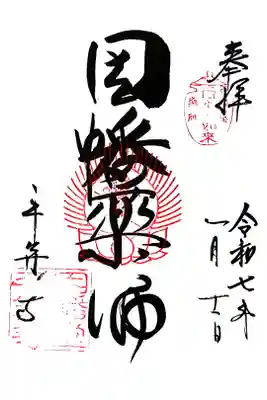 奉拝
令和七年
一月十一日
因幡薬師
平等寺